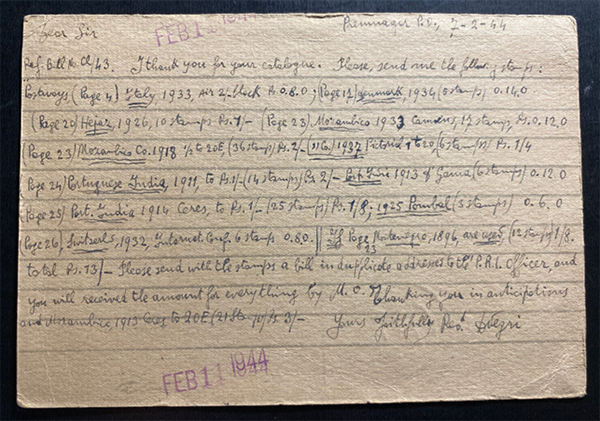 FEB 11 1944
Premnagar P.O., 7-2-44
Dear Sir
Ref. Bill No. Cl/43. I thank you for your catalogue. Please, send me the following stamps:
(Page 4) Italy 1933, Air 2/-block Rs. 0.8.0; (Page 17) Denmark, 1934 (5 stamps) 0.14.0
(Page 20) Hejaz, 1926, 10 stamps Rs. 1/- (Page 23) Mozambico 1933 Camoens, 17 stamps, Rs. 0.12.0
(Page 23) Mozambico Co. 1918 ½ to 20E (36 stamps) Rs. 2/- 1937 Pictorial 1 to 20, (6 stamps) Rs. 1/4
Page 24) Portuguese India, 1911, to Rs. 1/- (14 stamps) Rs 2/- Port. Indie 1913 of Gama (6 stamps) 0.12.0
(Page 25) Port. India 1914 Ceres, to Rs. 1/- (25 stamps) Rs. 1/8, 1925 Pombal (3 stamps) 0.6.0
(Page 26), Switzerl, 1932, Internat. Conf. 6 stamps 0.8.0. || If Page 23 Montenegro, 1896, are used (12 stamps) 1/8.
total Rs. 13/- Please send with the stamps a bill in duplicate addresses to the P.A.L. Officer, and
you will received the amount for everything by M.O. Thanking you in anticipations
and Mozambico, 1913 Ceres to 20E (21 Stamps) Rs 3/- Yours faithfully Rev.
FEB 11 1944